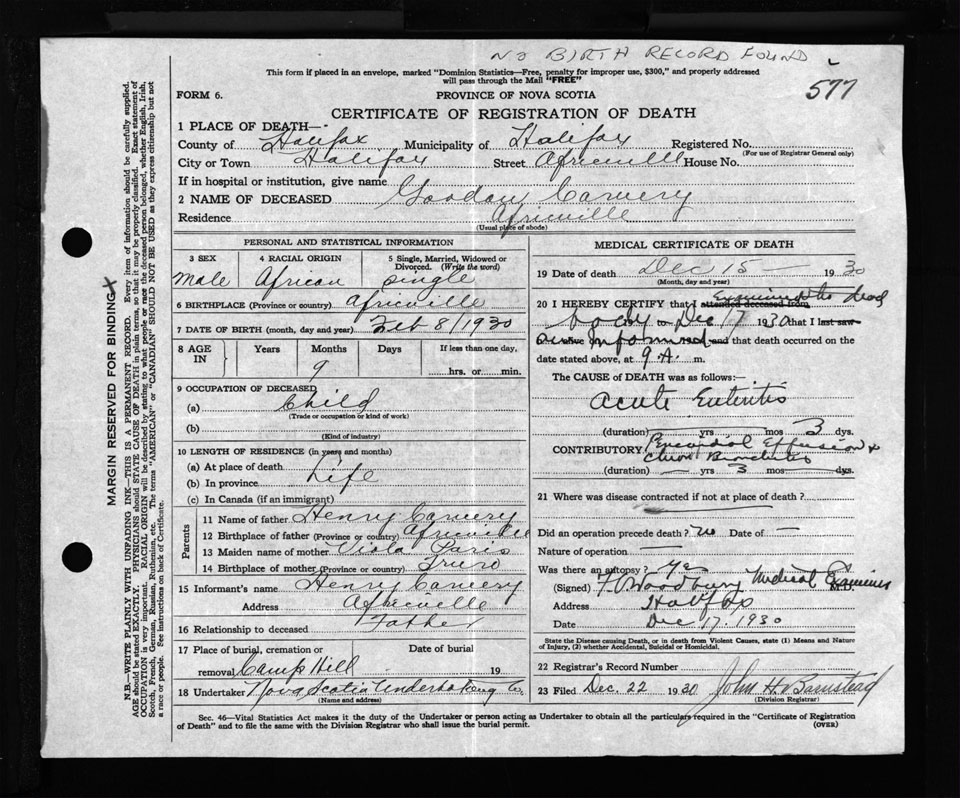 NO BIRTH RECORD FOUND
577
This form if placed in an envelope, marked "Dominion Statistics—Free, penalty for improper use, $300," and properly addressed
will pass through the Mail "FREE"
FORM 6.
PROVINCE OF NOVA SCOTIA
CERTIFICATE OF REGISTRATION OF DEATH
1 PLACE OF DEATH—
County of Halifax Municipality of Halifax Registered No.
(For use of Registrar General only)
City or Town Halifax Street Africville House No.
If in hospital or institution, give name
2 NAME OF DECEASED Gordon Carvery
Residence Africville
(Usual place of abode)
PERSONAL AND STATISTICAL INFORMATION
3 SEX 4 RACIAL ORIGIN 5 Single, Married, Widowed or
Divorced. (Write the word)
Male African Single
6 BIRTHPLACE (Province or country) Africville
7 DATE OF BIRTH (month, day and year) Feb 8/1930
8 AGE IN Years Months Days If less than one day,
9
hrs. or min.
9 OCCUPATION OF DECEASED
(a) Child
(Trade or occupation or kind of work)
(b)
(Kind of industry)
10 LENGTH OF RESIDENCE (in years and months)
(a) At place of death
(b) In province Life
(c) In Canada (if an immigrant)
Parents
11 Name of father Henry Carvery
12 Birthplace of father (Province or country) Africville
13 Maiden name of mother Viola Paris
14 Birthplace of mother (Province or country) Truro
15 Informant's name Henry Carvery
Address Africville
16 Relationship to deceased Father
17 Place of burial, cremation or Date of burial
removal Camp Hill 19
18 Undertaker Nova Scotia Undertaking Co.
(Name and address)
MEDICAL CERTIFICATE OF DEATH
19 Date of death Dec 15 — 1930
(Month, day and year)
20 I HEREBY CERTIFY that I attended deceased from Examined the dead
body to Dec 17 1930 that I last saw
informed and that death occurred on the
date stated above, at 9 A. m.
The CAUSE of DEATH was as follows:—
Acute Enteritis
(duration) yrs mos 3 dys.
CONTRIBUTORY Pericardial Effusion &
Bronchitis
(duration) — yrs 3 mos — dys.
21 Where was disease contracted if not at place of death?
Did an operation precede death? no Date of —
Nature of operation —
Was there an autopsy? yes
(Signed) Woodbury Medical Examiner M.D.
Address Halifax
Date Dec 17, 1930
State the Disease causing Death, or in death from Violent Causes, state (1) Means and Nature
of Injury, (2) whether Accidental, Suicidal or Homicidal.
22 Registrar's Record Number
23 Filed Dec. 22 1930 John H. Barnstead
(Division Registrar)
Sec. 46—Vital Statistics Act makes it the duty of the Undertaker or person acting as Undertaker to obtain all the particulars required in the "Certificate of Registration
of Death" and to file the same with the Division Registrar who shall issue the burial permit.
(OVER)
MARGIN RESERVED FOR BINDING
X
N.B.—WRITE PLAINLY WITH UNFADING INK—THIS IS A PERMANENT RECORD. Every item of information should be carefully supplied.
AGE should be stated EXACTLY. PHYSICIANS should STATE CAUSE OF DEATH in plain terms, so that it may be properly classified. Exact statement of
OCCUPATION is very important. RACIAL ORIGIN will be described by stating to what people or race the deceased person belonged, whether English, Irish,
Scotch, French, German, Russian, Ruthenian, etc. The terms "AMERICAN" or "CANADIAN" SHOULD NOT BE USED as they express citizenship but not
a race or people. See instructions on back of Certificate.